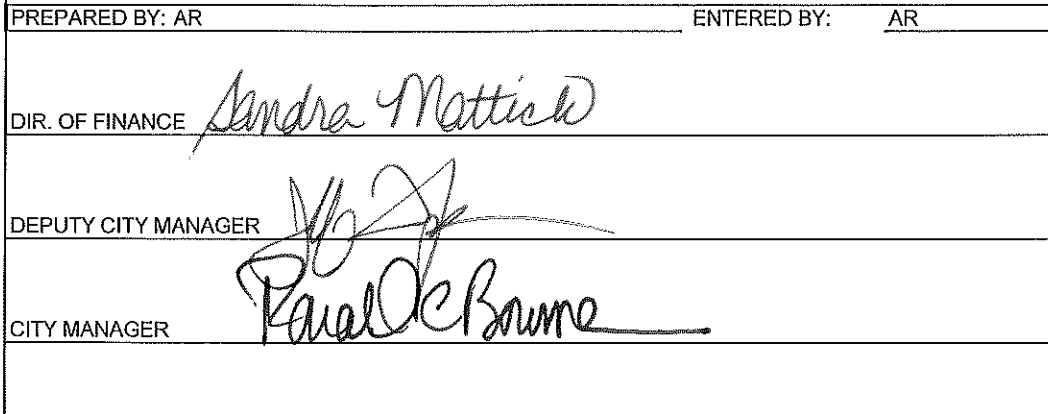 PREPARED BY: AR ENTERED BY: AR
DIR. OF FINANCE Sandra Mattick
DEPUTY CITY MANAGER
CITY MANAGER Ronald C Bowne